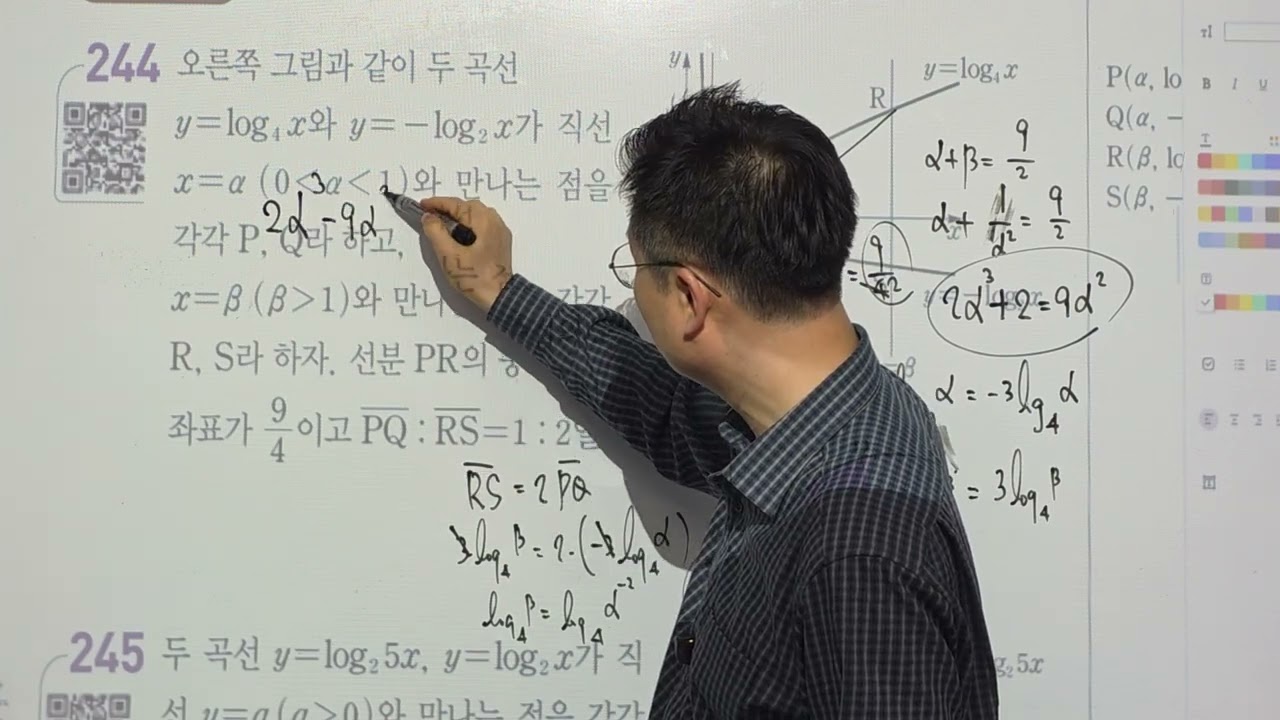 244 오른쪽 그림과 같이 두 곡선
y=log₄x와 y=-log₂x가 직선
x=α (0<α<1)와 만나는 점을
2α³ - 9α²
각각 P, Q라 하고,
x=β (β>1)와 만나는 각각
R, S라 하자. 선분 PR의
좌표가 9/4이고 PQ : RS=1 : 2일
RS = 2PQ
3log₄β = 2·(-3log₄α)
log₄β = log₄α⁻²
245 두 곡선 y=log₂5x, y=log₂x가 직
선 y=a(a>0)와 만나는 점을 각각
y
R
y=log₄x
x
α+β = 9/2
α + 1/α² = 9/2
2α³+2=9α²
α = -3log₄α
= 3log₄β
P(α, lo
Q(α, -
R(β, lo
S(β, -
B I U